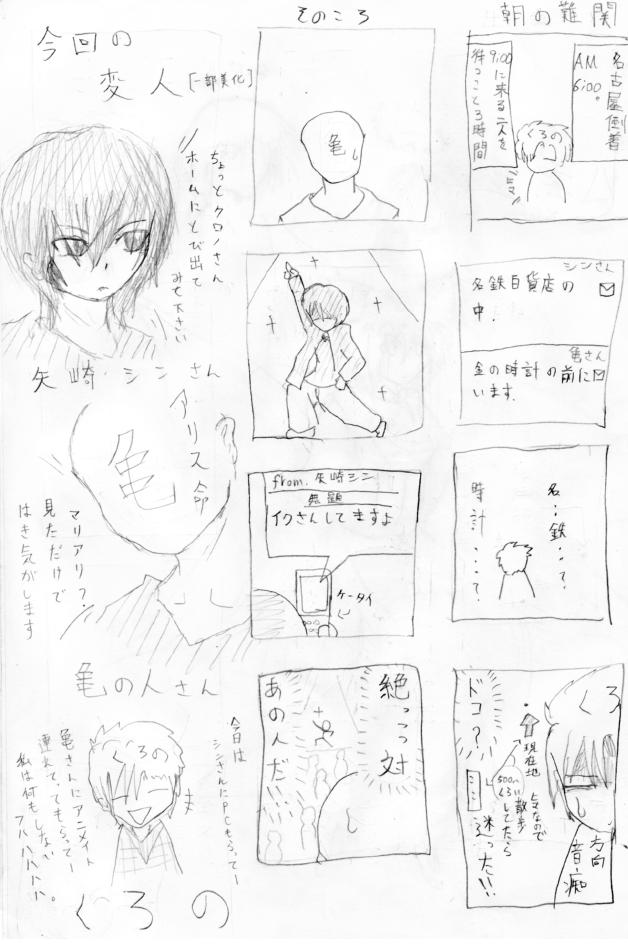 朝の難関
名古屋倒着
AM
6:00。
9:00に来る二人を
待つこと3時間
くろの
シンさん
名鉄百貨店の
中.
亀さん
金の時計の前に
います.
名…鉄…?
時計…?
くろ
方向
音痴
ドコ?
現在地
ココ
500m
くらい散歩
してたら
迷った!!
そのころ
亀
from.矢崎シン
無題
イクさんしてますよ
ケータイ
絶っっ対
あの人だ!!
今回の
変人[一部美化]
ちょっとクロノさん
ホームにとび出て
みて下さい
矢崎・シンさん
亀
アリス命
マリアリ?
見ただけで
はき気がします
亀の人さん
くろの
今日は
シンさんにPCもらってー
亀さんにアニメイト
連れてってもらってー
私は何もしない
フハハハハハ。
くろの